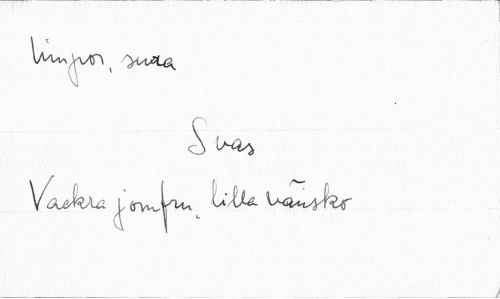 limpor, sura
Svas
Vackra jomfru, lilla vänsko